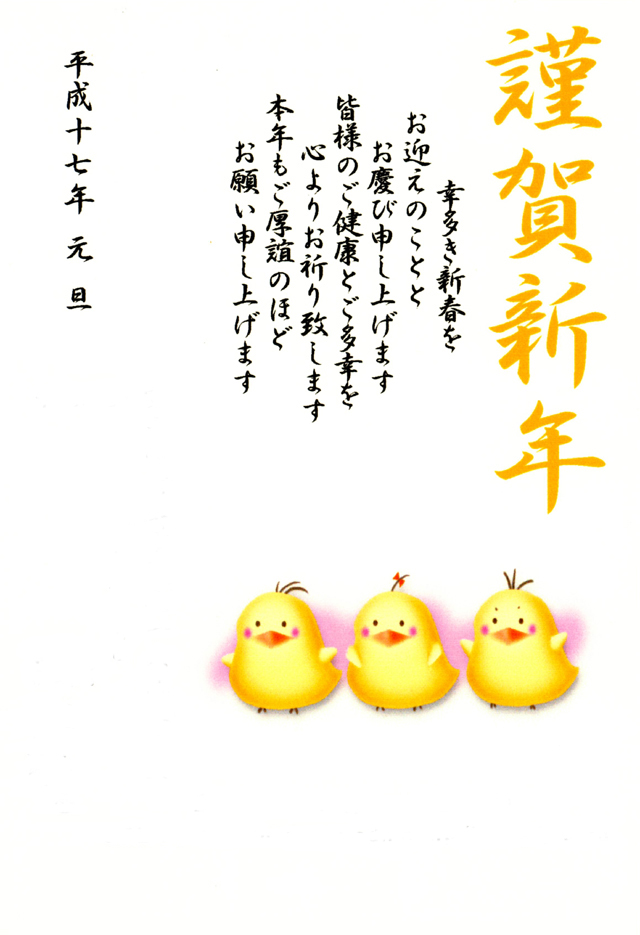 謹賀新年
幸多き新春を
お迎えのことと
お慶び申し上げます
皆様のご健康とご多幸を
心よりお祈り致します
本年もご厚誼のほど
お願い申し上げます
平成十七年 元旦